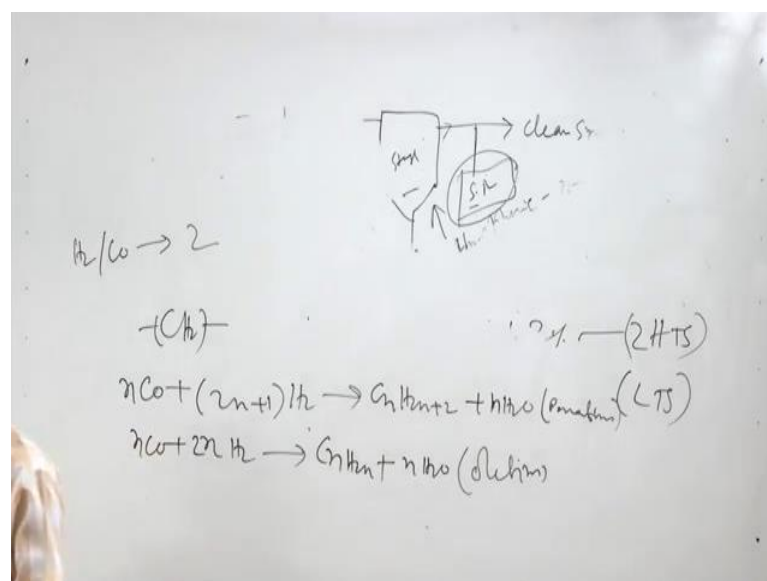 clean S
S.R
H2/Co → 2
-(CH2)-
(2HTS)
nCo + (2n+1)H2 → CnH2n+2 + nH2O (Paraffins) (LTS)
nCo + 2n H2 → CnH2n + nH2O (Olefins)